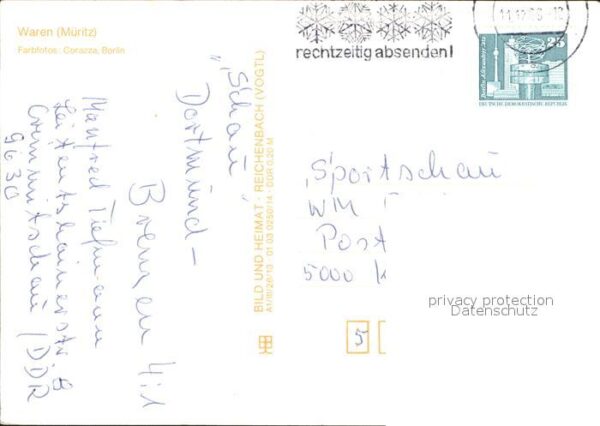 Waren (Müritz)
Farbfotos: Corazza, Berlin
rechtzeitig absenden!
11.12.
25
Berlin, Alexanderplatz
DEUTSCHE DEMOKRATISCHE REPUBLIK
"Schau"
Dortmund-
Bremen 4:1
Manfred
Crimmitschau / DDR
9630
BILD UND HEIMAT · REICHENBACH (VOGTL)
A1/III/26/10 · 01 03 0250/14 · DDR 0,20 M
"Sportschau
WM
Post
5000 K
5
privacy protection
Datenschutz